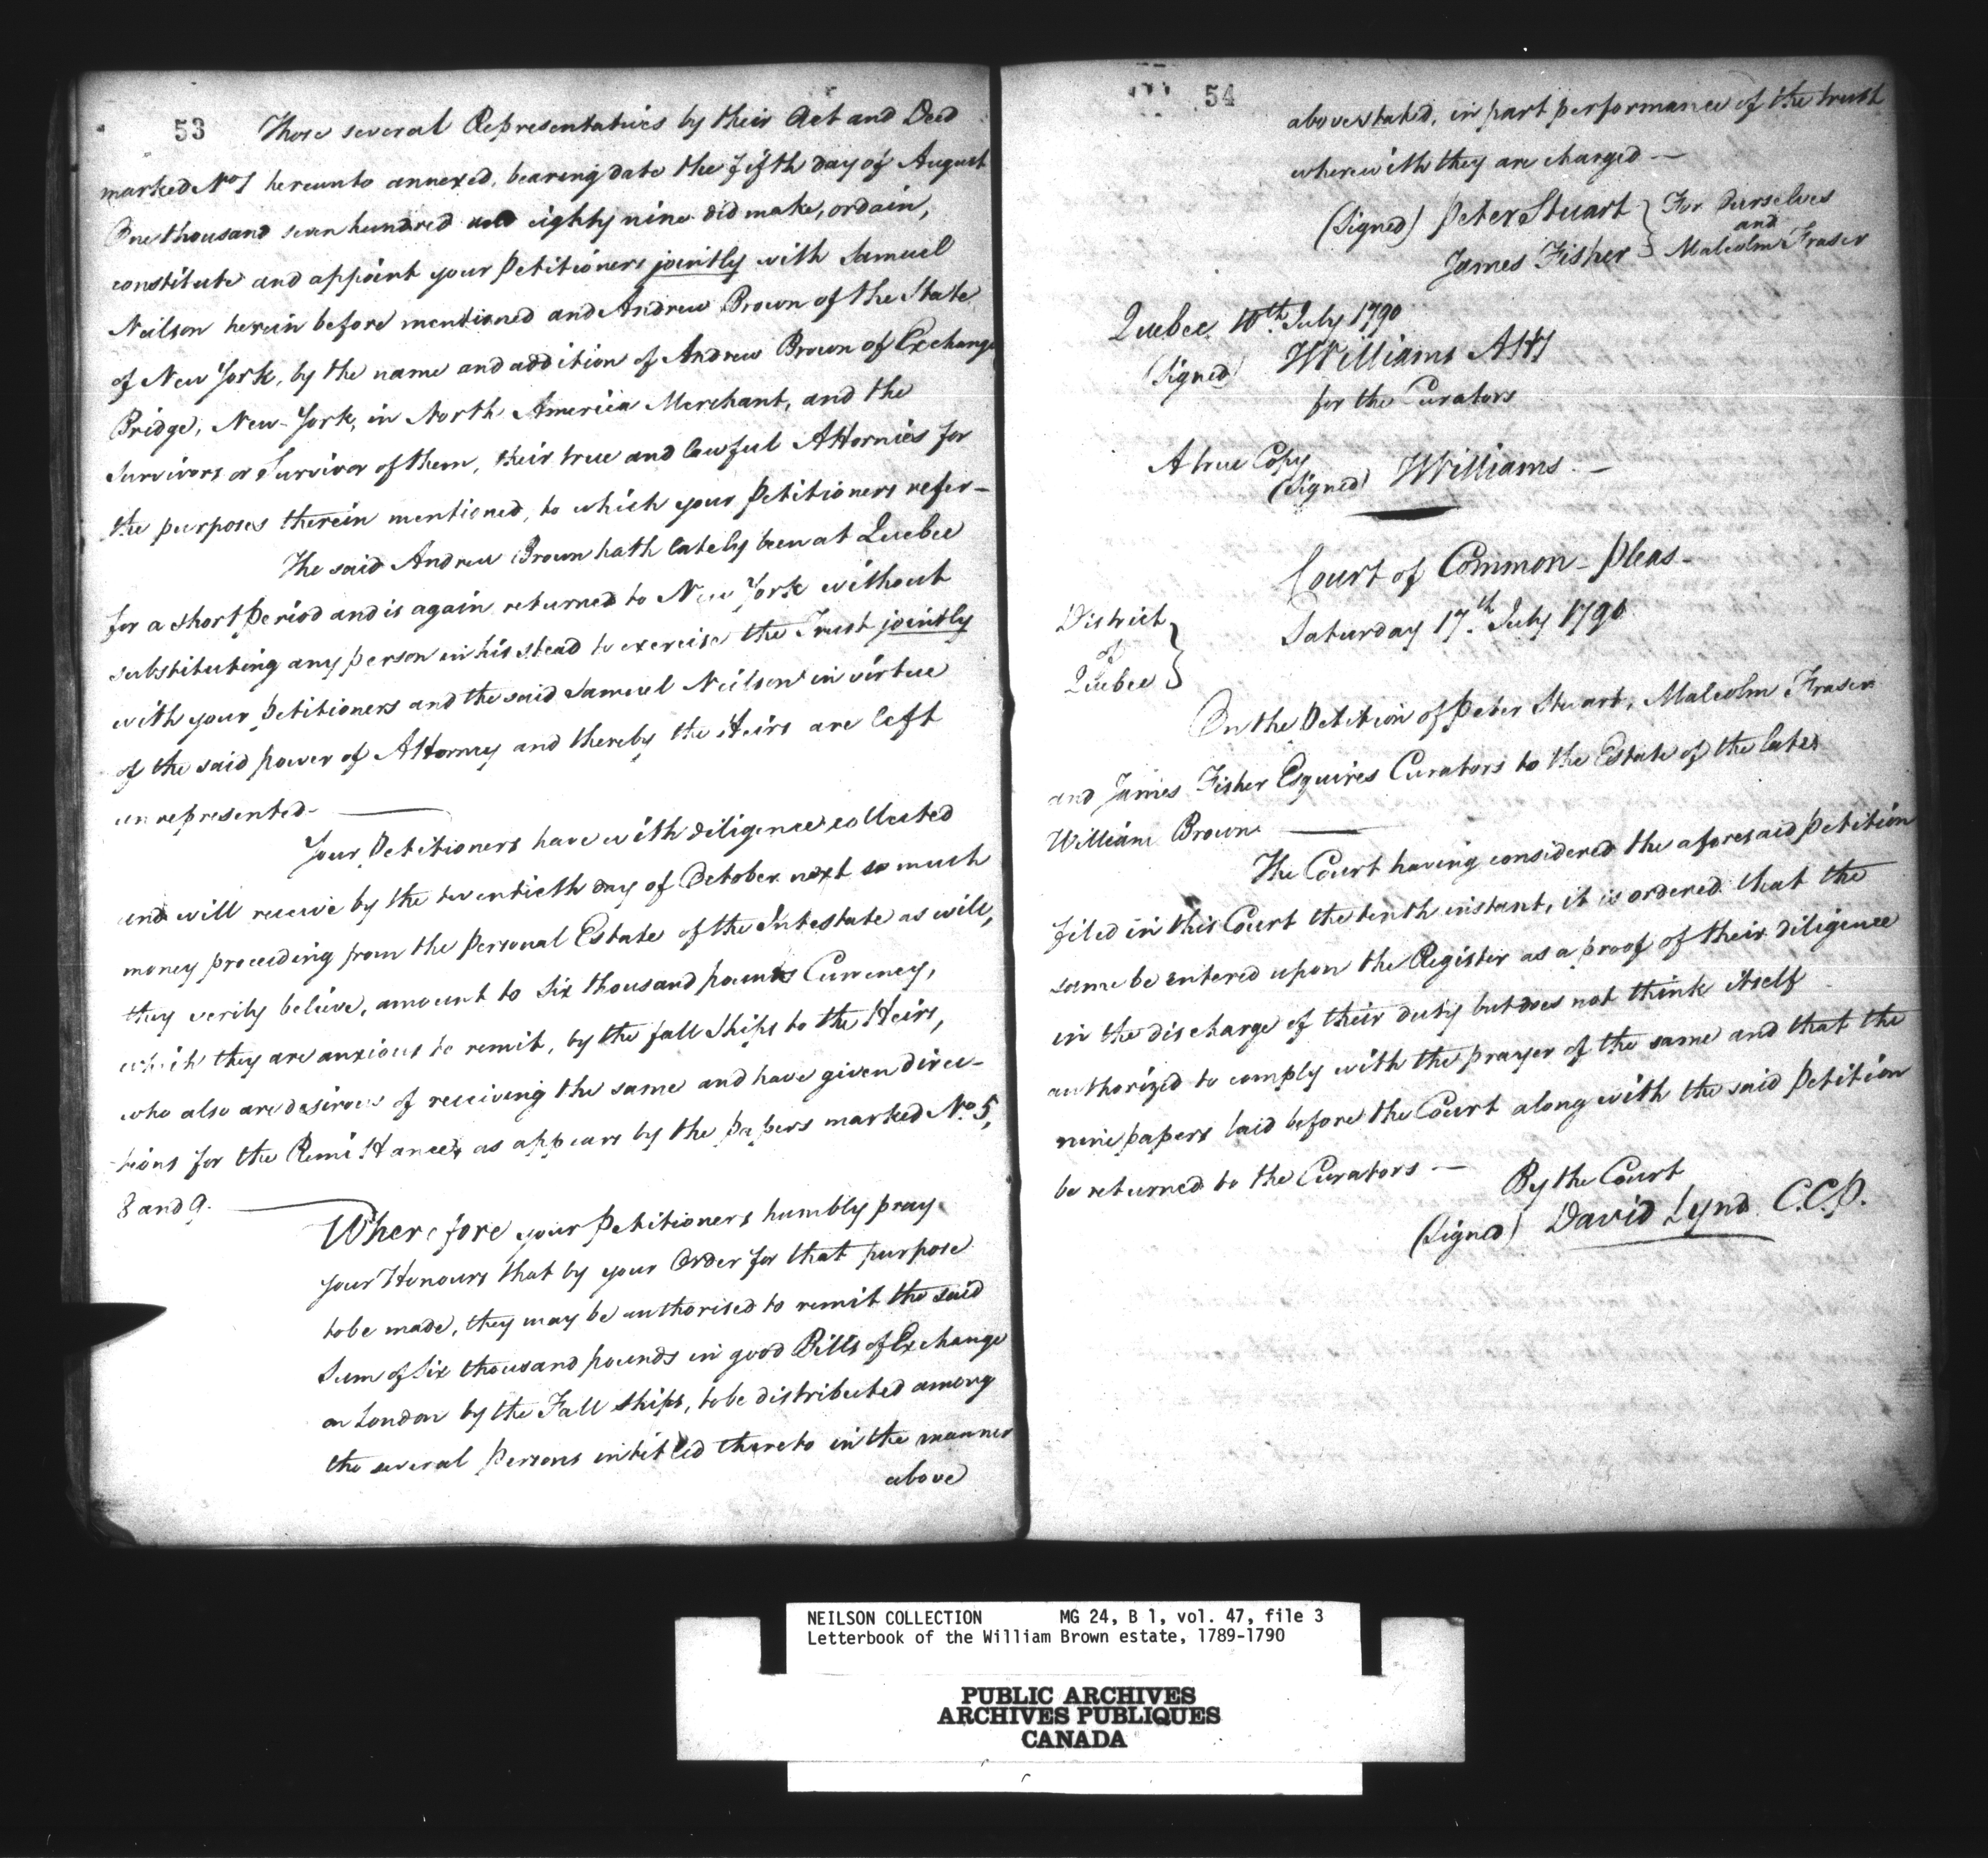 53 Those several Representatives by their Act and Deed
marked No 1 hereunto annexed, bearing date the fifth day of August
One thousand seven hundred and eighty nine did make, ordain,
constitute and appoint your Petitioners jointly with Samuel
Neilson herein before mentioned and Andrew Brown of the State
of New York, by the name and addition of Andrew Brown of Exchange
Bridge, New-York, in North America Merchant, and the
Survivors or Survivor of them, their true and lawful Attornies for
the purposes therein mentioned, to which your Petitioners refer—
The said Andrew Brown hath lately been at Quebec
for a short Period and is again returned to New York without
substituting any person in his stead to exercise the Trust jointly
with your Petitioners and the said Samuel Neilson in virtue
of the said power of Attorney and thereby the Heirs are left
unrepresented—
Your Petitioners have with diligence collected
and will receive by the twentieth day of October next so much
money proceeding from the Personal Estate of the Intestate as will,
they verily believe, amount to Six thousand pounds Currency,
which they are anxious to remit, by the fall Ships to the Heirs,
who also are desirous of receiving the same and have given direc-
tions for the Remittances, as appears by the Papers marked No. 5,
8 and 9.
Wherefore your Petitioners humbly pray
your Honours that by your Order for that purpose
to be made, they may be authorised to remit the said
Sum of Six thousand pounds in good Bills of Exchange
on London by the Fall Ships, to be distributed among
the several Persons intitled thereto in the manner
above
54
above stated, in part performance of the trust
wherewith they are charged —
(Signed) Peter Stuart } For Ourselves
and
James Fisher } Malcolm Fraser
Quebec 10th July 1790
(Signed) Williams Atty
for the Curators
A true Copy
(Signed) Williams. —
Court of Common - Pleas -
District
of
Quebec }
Saturday 17th July 1790
On the Petition of Peter Stuart, Malcolm Fraser
and James Fisher Esquires Curators to the Estate of the late
William Brown —
The Court having considered the aforesaid Petition
filed in this Court the tenth instant, it is ordered that the
same be entered upon the Register as a proof of their diligence
in the discharge of their duty but does not think itself
authorized to comply with the prayer of the same and that the
nine papers laid before the Court along with the said Petition
be returned to the Curators —
By the Court
(Signed) David Lynd C.C.P.
NEILSON COLLECTION MG 24, B 1, vol. 47, file 3
Letterbook of the William Brown estate, 1789-1790
PUBLIC ARCHIVES
ARCHIVES PUBLIQUES
CANADA